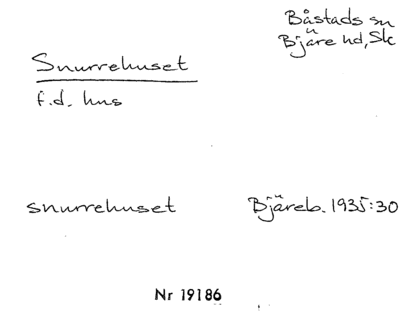 Båstads sn
Bjäre hd, Sk
Snurrehuset
f.d. hus
snurrehuset Bjäreb. 1935:30
Nr 19186